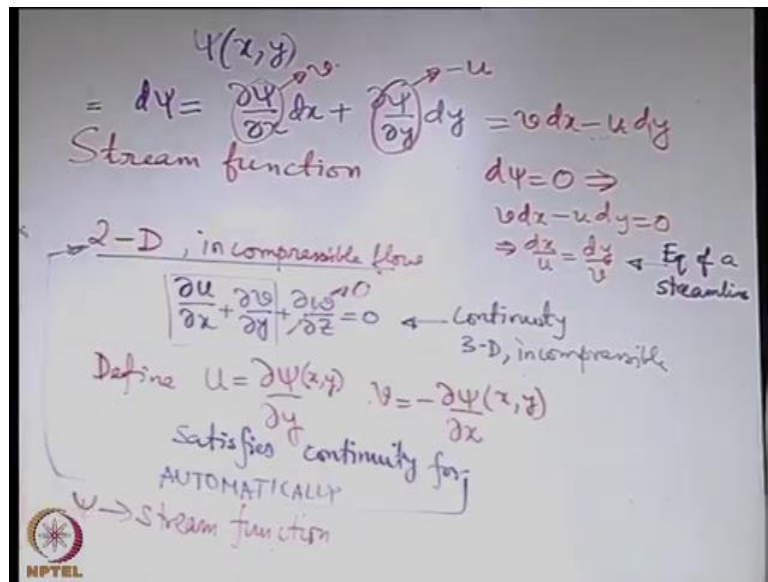 Ψ(x,y)
= dΨ = ∂Ψ/∂x dx + ∂Ψ/∂y dy = v dx - u dy
→ v
→ -u
Stream function
dΨ = 0 ⇒
v dx - u dy = 0
⇒ dx/u = dy/v ← Eq of a
streamline
2-D, incompressible flow
∂u/∂x + ∂v/∂y + ∂w/∂z = 0 ← Continuity
0
3-D, incompressible
Define u = ∂Ψ(x,y)/∂y v = -∂Ψ/∂x (x,y)
Satisfies continuity
AUTOMATICALLY
Ψ → Stream function
NPTEL